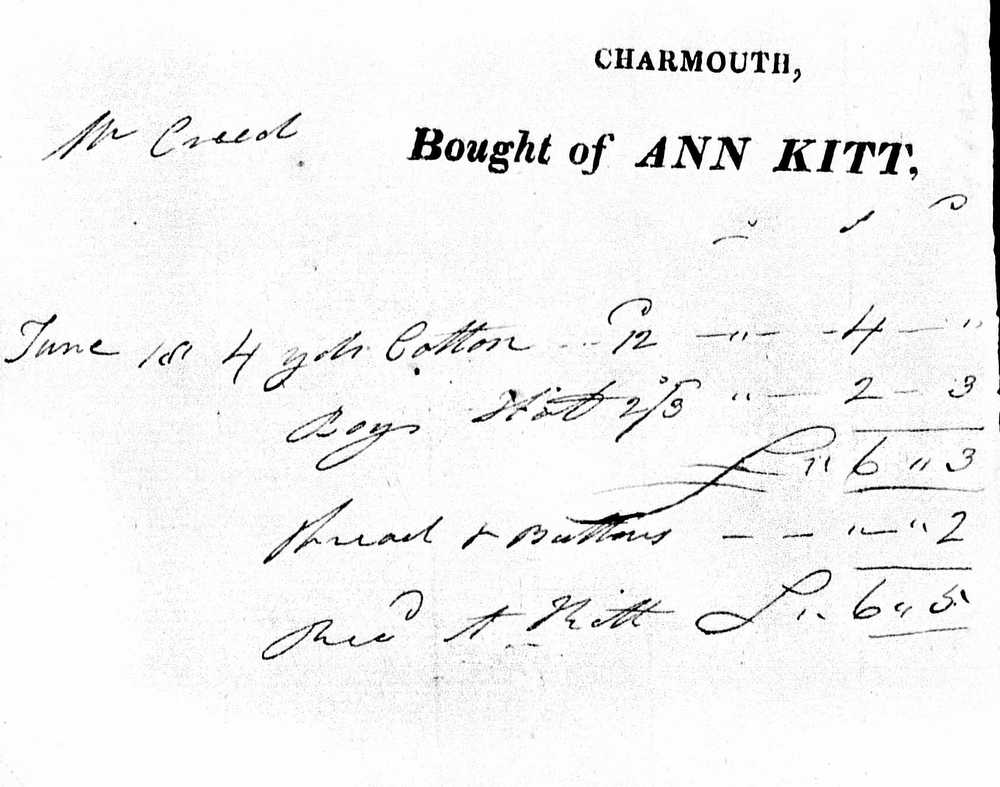 CHARMOUTH,
Mr Creed
Bought of ANN KITT,
June 18 4 yds Cotton -- 12 D -"- - 4 - "
Boys Hat 2s/3 " - 2 - 3
£ " 6 " 3
Thread & Buttons - - " - " 2
Recd A. Kitt £ " 6 " 5